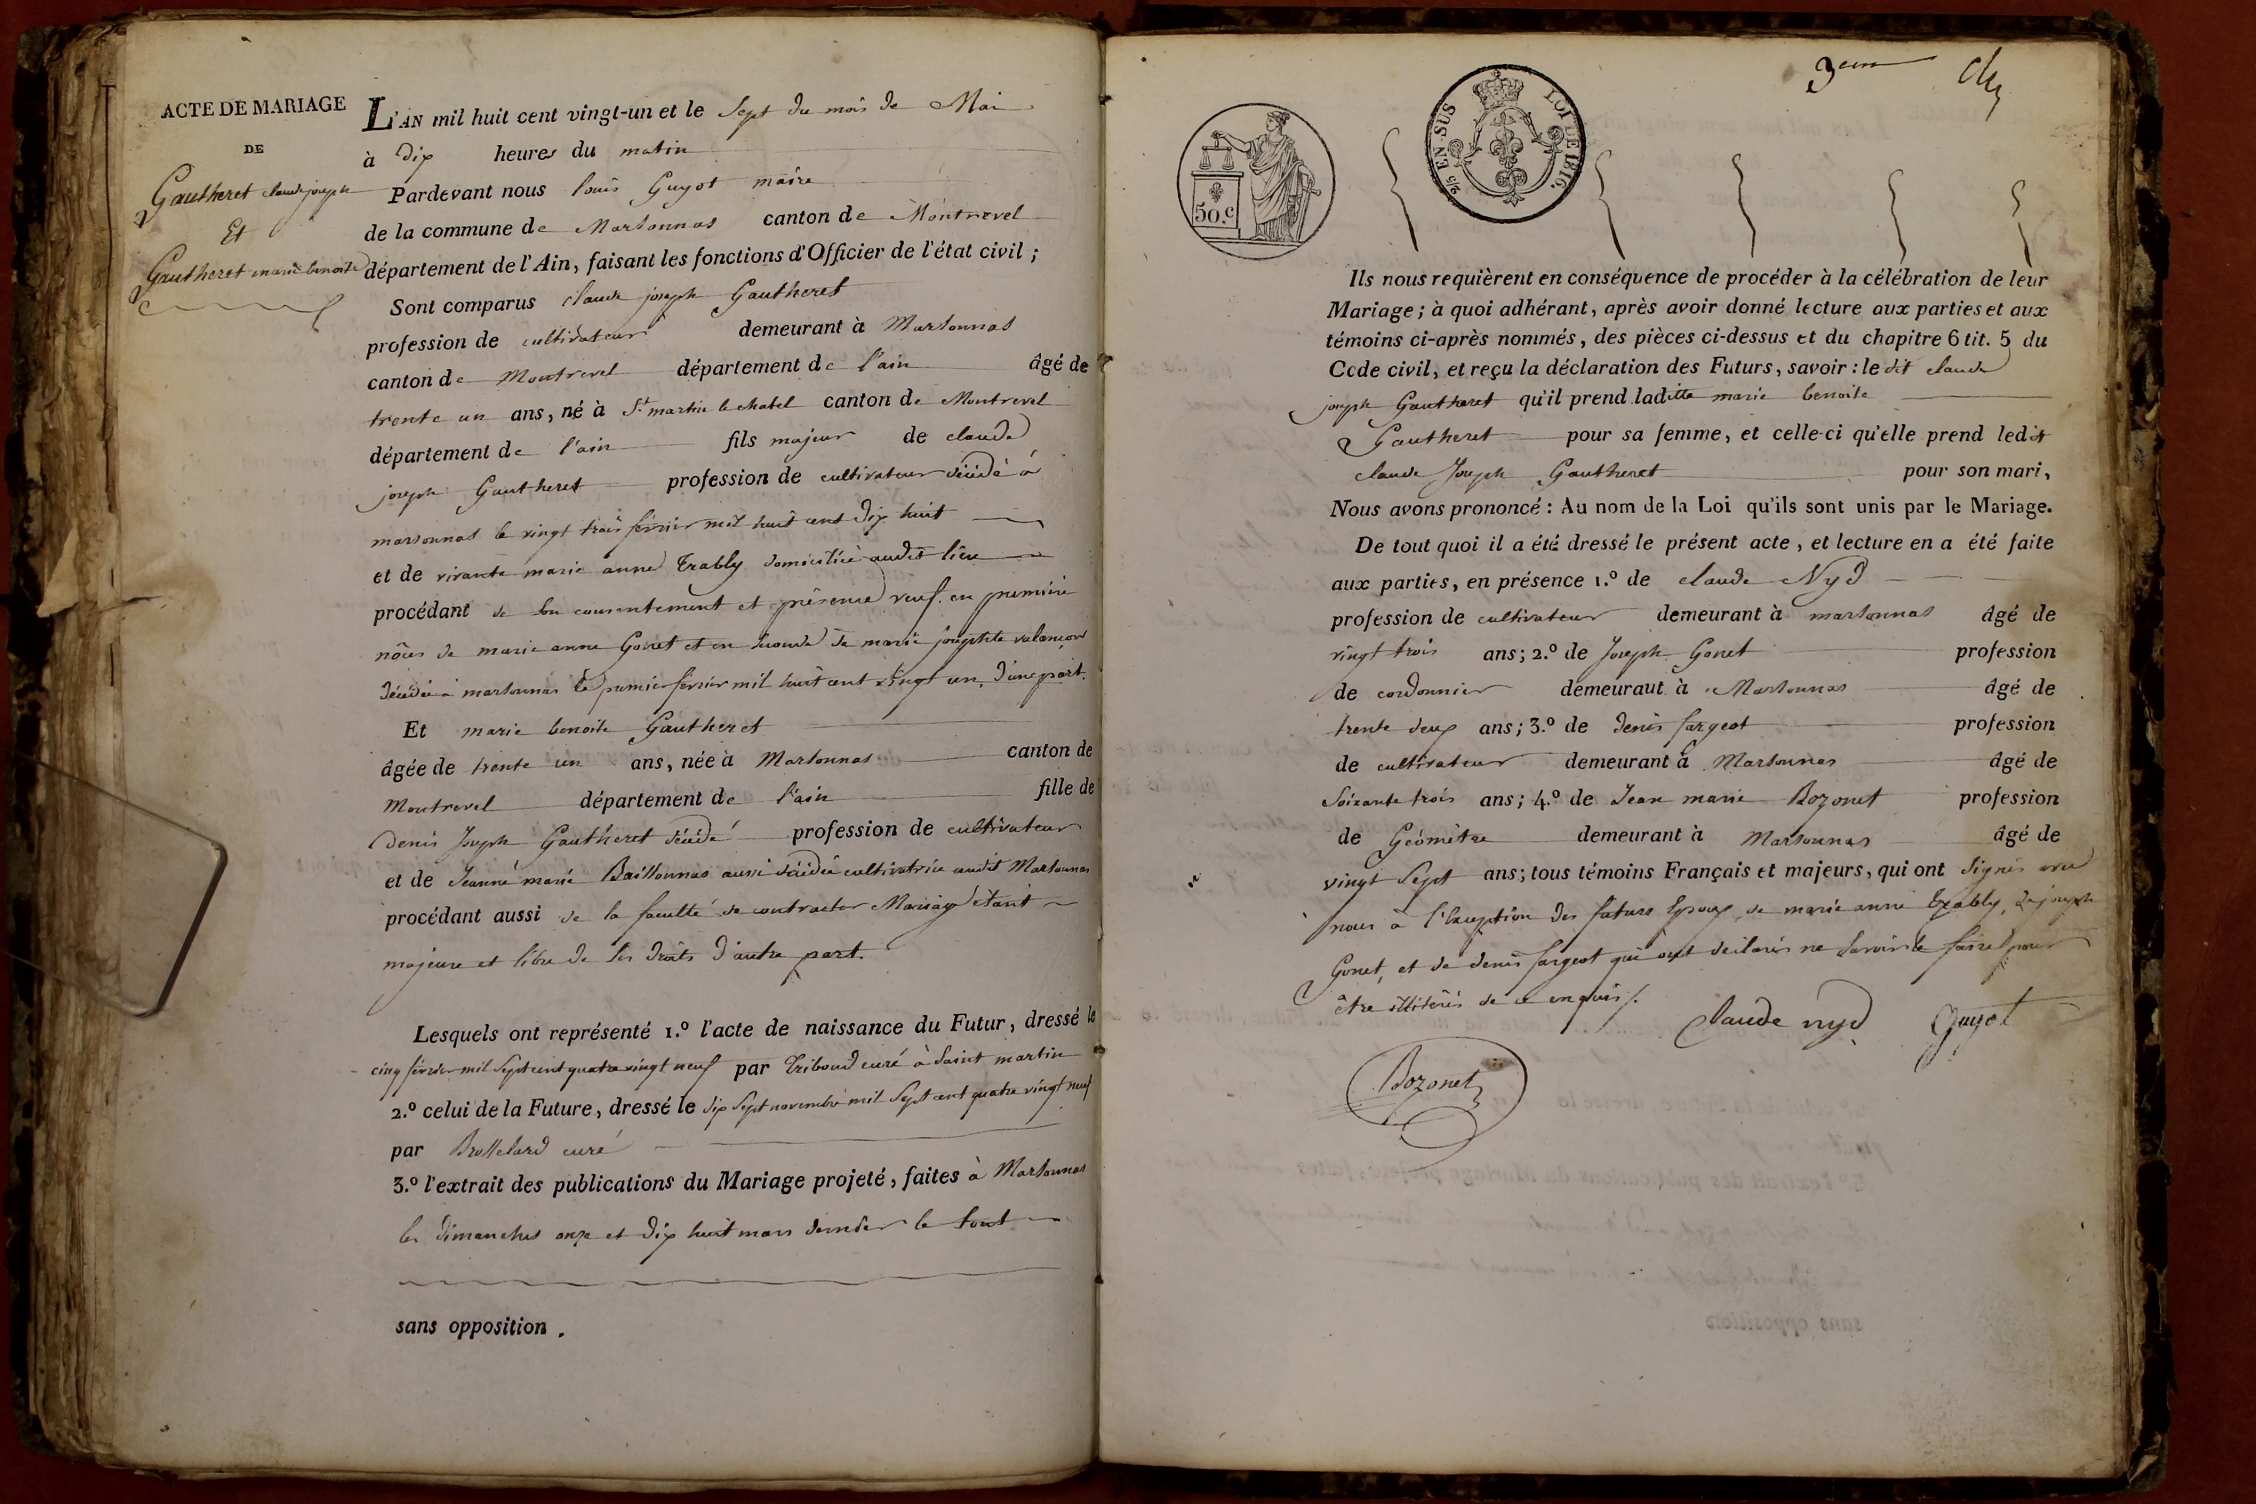 ACTE DE MARIAGE
DE
Gautheret claude joseph
Et
Gautheret marie benoite
L'AN mil huit cent vingt-un et le Sept du mois de Mai
à dix heures du matin
Pardevant nous louis Guyot maire
de la commune de Marsonnas canton de Montrevel
département de l'Ain, faisant les fonctions d'Officier de l'état civil;
Sont comparus claude joseph Gautheret
profession de cultivateur demeurant à Marsonnas
canton de Montrevel département de l'ain âgé de
trente un ans, né à St martin le chatel canton de Montrevel
département de l'ain fils majeur de claude
joseph Gautheret profession de cultivateur décédé à
marsonnas le vingt trois février mil huit cent dix huit
et de vivante marie anne Trably domiciliée audit lieu
procédant de son consentement et présence veuf en première
nôces de marie anne Gonet et en seconde de marie josephte valançon
décédée à marsonnas le premier février mil huit cent vingt un, d'une part.
Et marie benoite Gautheret
âgée de trente un ans, née à Marsonnas canton de
Montrevel département de l'ain fille de
Denis Joseph Gautheret décédé profession de cultivateur
et de Jeanne marie Baillonnas aussi décédée cultivatrice audit Marsonnas
procédant aussi de la faculté de contracter Mariage étant
majeure et libre de ses droits d'autre part.
Lesquels ont représenté 1.º l'acte de naissance du Futur, dressé le
cinq février mil sept cent quatre vingt neuf par Triboud curé à Saint martin
2.º celui de la Future, dressé le dix sept novembre mil sept cent quatre vingt neuf
par Brosselard curé
3.º l'extrait des publications du Mariage projeté, faites à Marsonnas
les dimanches onze et dix huit mars dernier le tout
sans opposition.
3eme
50.c
C/s EN SUS LOI DE 1816.
Ils nous requièrent en conséquence de procéder à la célébration de leur
Mariage; à quoi adhérant, après avoir donné lecture aux parties et aux
témoins ci-après nommés, des pièces ci-dessus et du chapitre 6 tit. 5 du
Code civil, et reçu la déclaration des Futurs, savoir: le dit claude
joseph Gautheret qu'il prend laditte marie benoite
Gautheret pour sa femme, et celle-ci qu'elle prend ledit
claude Joseph Gautheret pour son mari,
Nous avons prononcé: Au nom de la Loi qu'ils sont unis par le Mariage.
De tout quoi il a été dressé le présent acte, et lecture en a été faite
aux parties, en présence 1.º de claude Nyd
profession de cultivateur demeurant à marsonnas âgé de
vingt trois ans; 2.º de Joseph Gonet profession
de cordonnier demeuraut à Marsonnas âgé de
trente deux ans; 3.º de denis fargeot profession
de cultivateur demeurant à Marsonnas âgé de
Soixante trois ans; 4.º de Jean marie Bozonet profession
de Géomètre demeurant à Marsonnas âgé de
vingt Sept ans; tous témoins Français et majeurs, qui ont signés avec
nous à l'exception des futurs Epoux, de marie anne Trably, de joseph
Gonet, et de denis fargeot qui ont déclarés ne savoir le faire pour
être illitérés de ce enquis.
Claude nyd Guyot
Bozonet